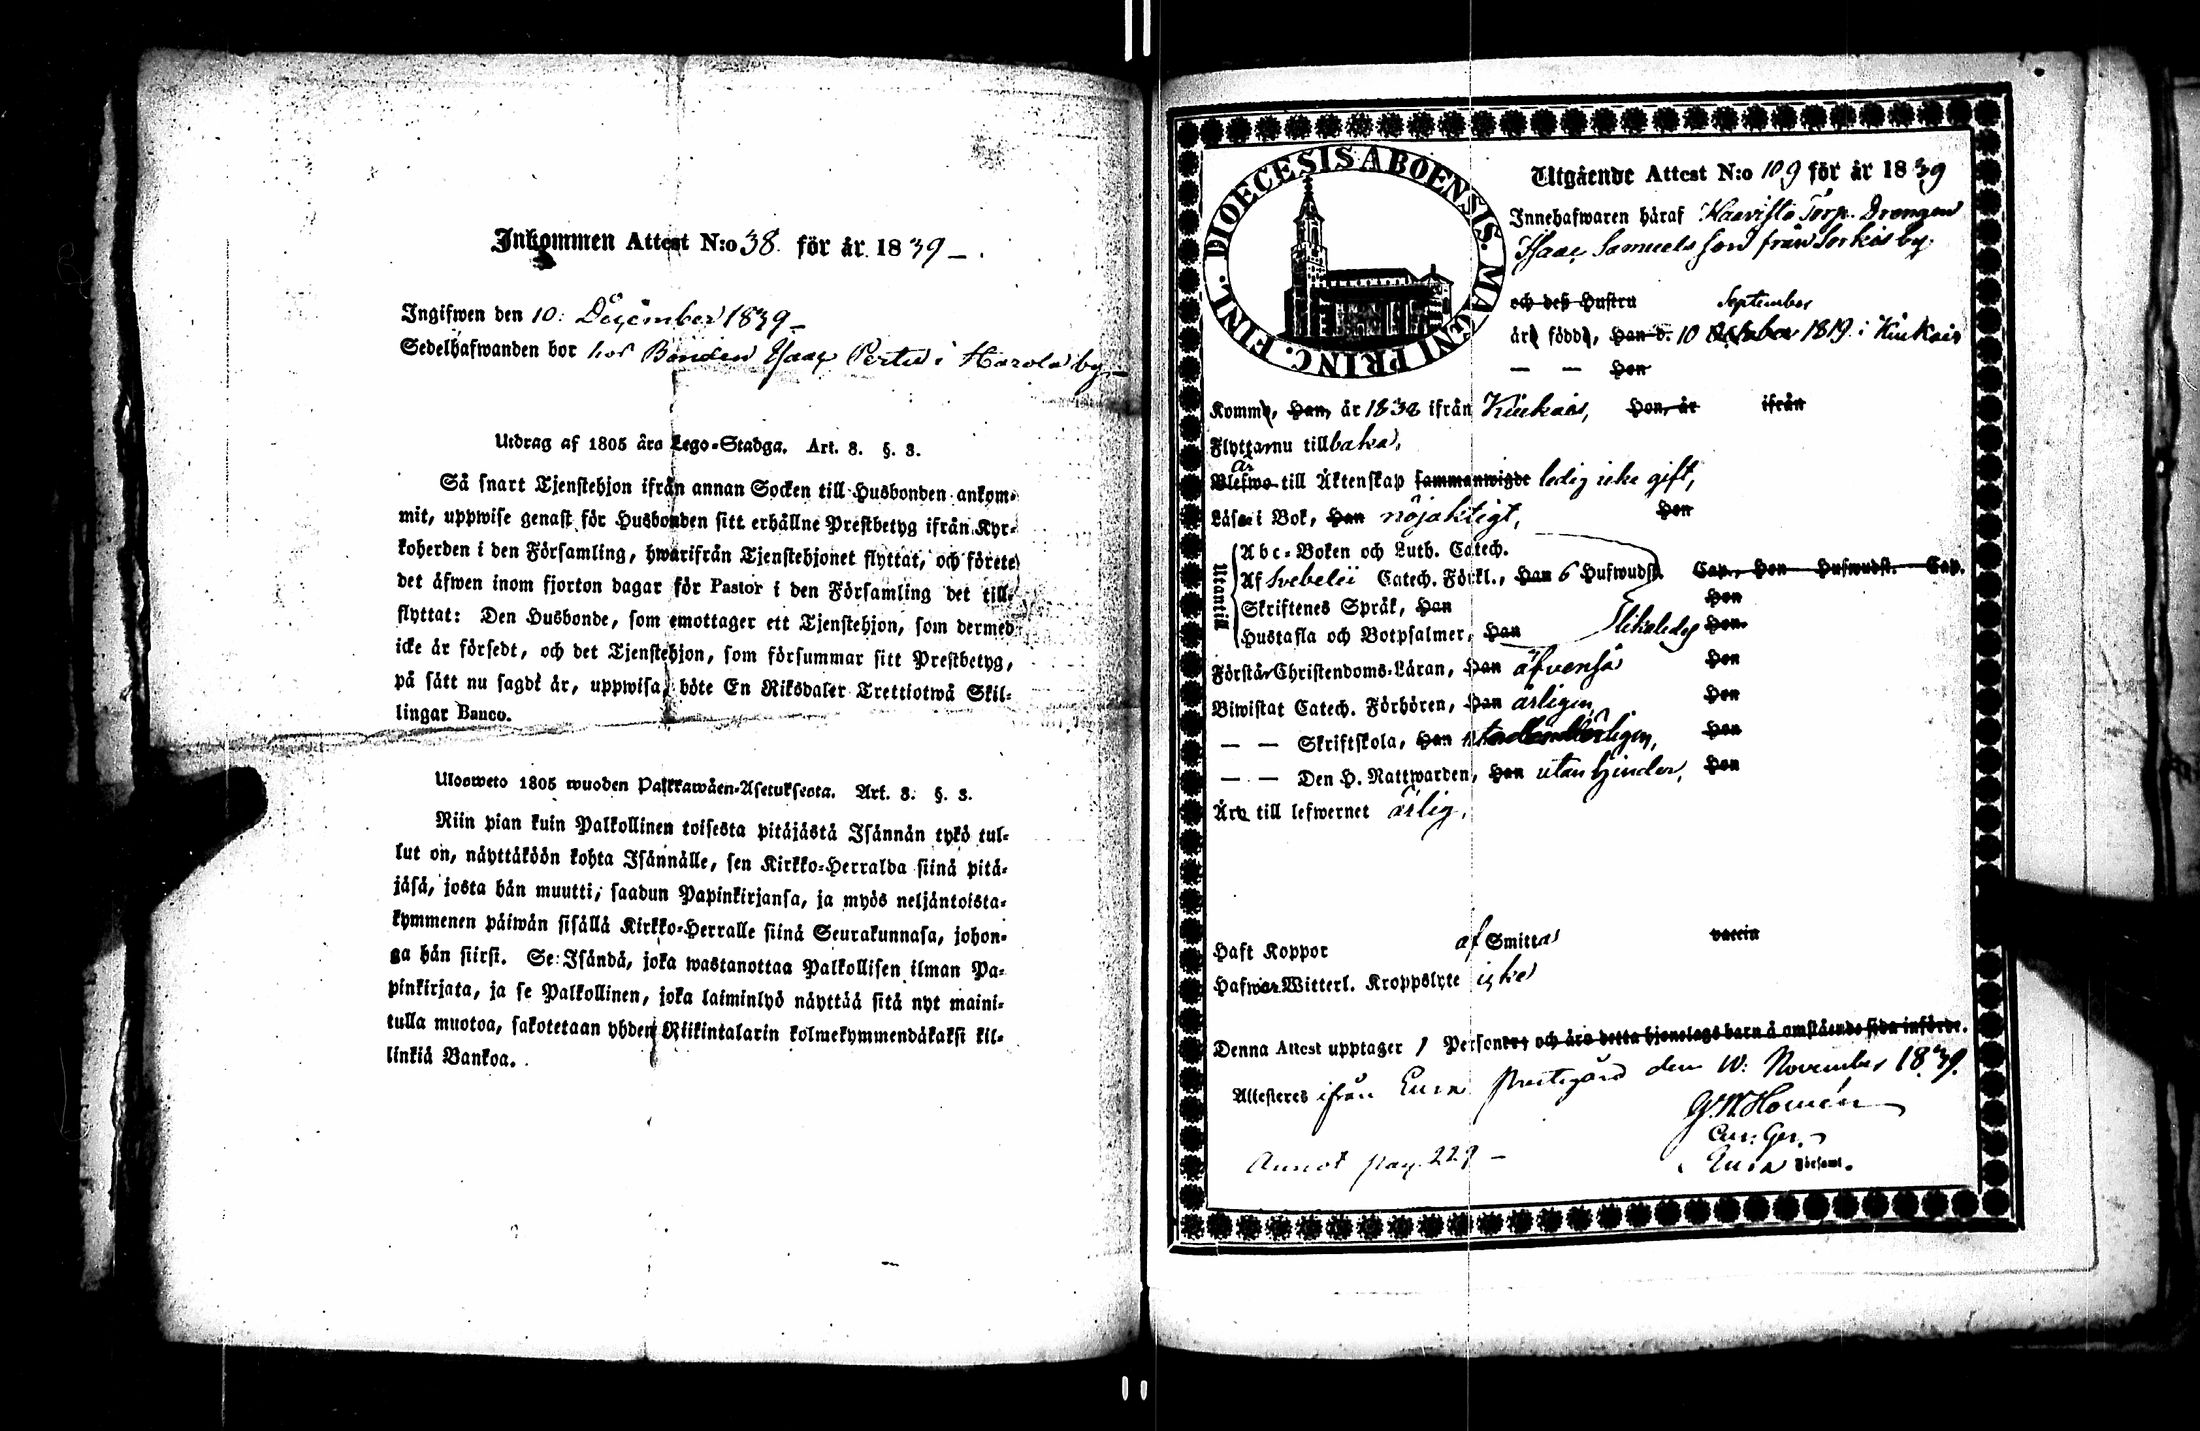 Inkommen Attest N:o 38. för år 1839 –
Ingifwen den 10: December 1839 –
Sedelhafwanden bor hos Bonden Isaac Perttu i Harola by –
Utdrag af 1805 års Lego-Stadga. Art. 3. §. 3.
Så snart Tjenstehjon ifrån annan Socken till Husbonden ankom-
mit, uppwise genast för Husbonden sitt erhållne Prestbetyg ifrån Kyr-
koherden i den Församling, hwarifrån Tjenstehjonet flyttat, och förete
det äfwen inom fjorton dagar för Pastor i den Församling det till-
flyttat: Den Husbonde, som emottager ett Tjenstehjon, som dermed
icke är försedt, och det Tjenstehjon, som försummar sitt Prestbetyg,
på sätt nu sagdt är, uppwisa, böte En Riksdaler Trettiotwå Skil-
lingar Banco.
Ulosweto 1805 wuoden Palkkawäen-Asetuksesta. Art. 3. §. 3.
Niin pian kuin Palkollinen toisesta pitäjästä Isännän tykö tul-
lut on, näyttäköön kohta Isännälle, sen Kirkko-Herralda siinä pitä-
jäsä, josta hän muutti, saadun Papinkirjansa, ja myös neljäntoista-
kymmenen päiwän sisällä Kirkko-Herralle siinä Seurakunnasa, johon-
ga hän siirsi. Se Isändä, joka wastanottaa Palkollisen ilman Pa-
pinkirjata, ja se Palkollinen, joka laiminlyö näyttää sitä nyt maini-
tulla muotoa, sakotetaan yhden Riikintalarin kolmekymmendäkaksi kil-
linkiä Bankoa.
DIOECESIS ABOENSIS. MAGNI PRINC. FINL.
Utgående Attest N:o 109 för år 1839
Innehafwaren häraf Haavisto Torp. Drengen
Isaac Samuelsson från Sorkis by.
och deß Hustru September
äro födde, Han d. 10 October 1819 i Kiukais
— — Hon
Komm, Han, år 1838 ifrån Kiukais, Hon, år ifrån
Flyttar nu tillbaka,
är
Blefwo till Äktenskap sammanwigde ledig icke gift,
Läser i Bok, Han nöjaktigt, Hon
Utantill
Abc-Boken och Luth. Catech.
Af Svebelii Catech. Förkl., Han 6 Hufwudst. Cap., Hon Hufwudst. Cap.
Skriftenes Språk, Han Hon
Hustafla och Botpsalmer, Han Hon
Förstår Christendoms-Läran, Han äfvenså Hon
Biwistat Catech. Förhören, Han årligen, Hon
— — Skriftskola, Han Hon
— — Den H. Nattwarden, Han utan hinder, Hon
Är till lefwernet ärlig.
Haft Koppor af Smitta vaccin
Hafwer Witterl. Kroppslyte icke
Denna Attest upptager 1 Personer, och äro detta hjonelags barn å omstående sida införde.
Attesteres ifrån Eura Prestegård den 10: November 1839.
G W Homén
Cur: Ger.
Eura Församl.
Annot pag. 229 –